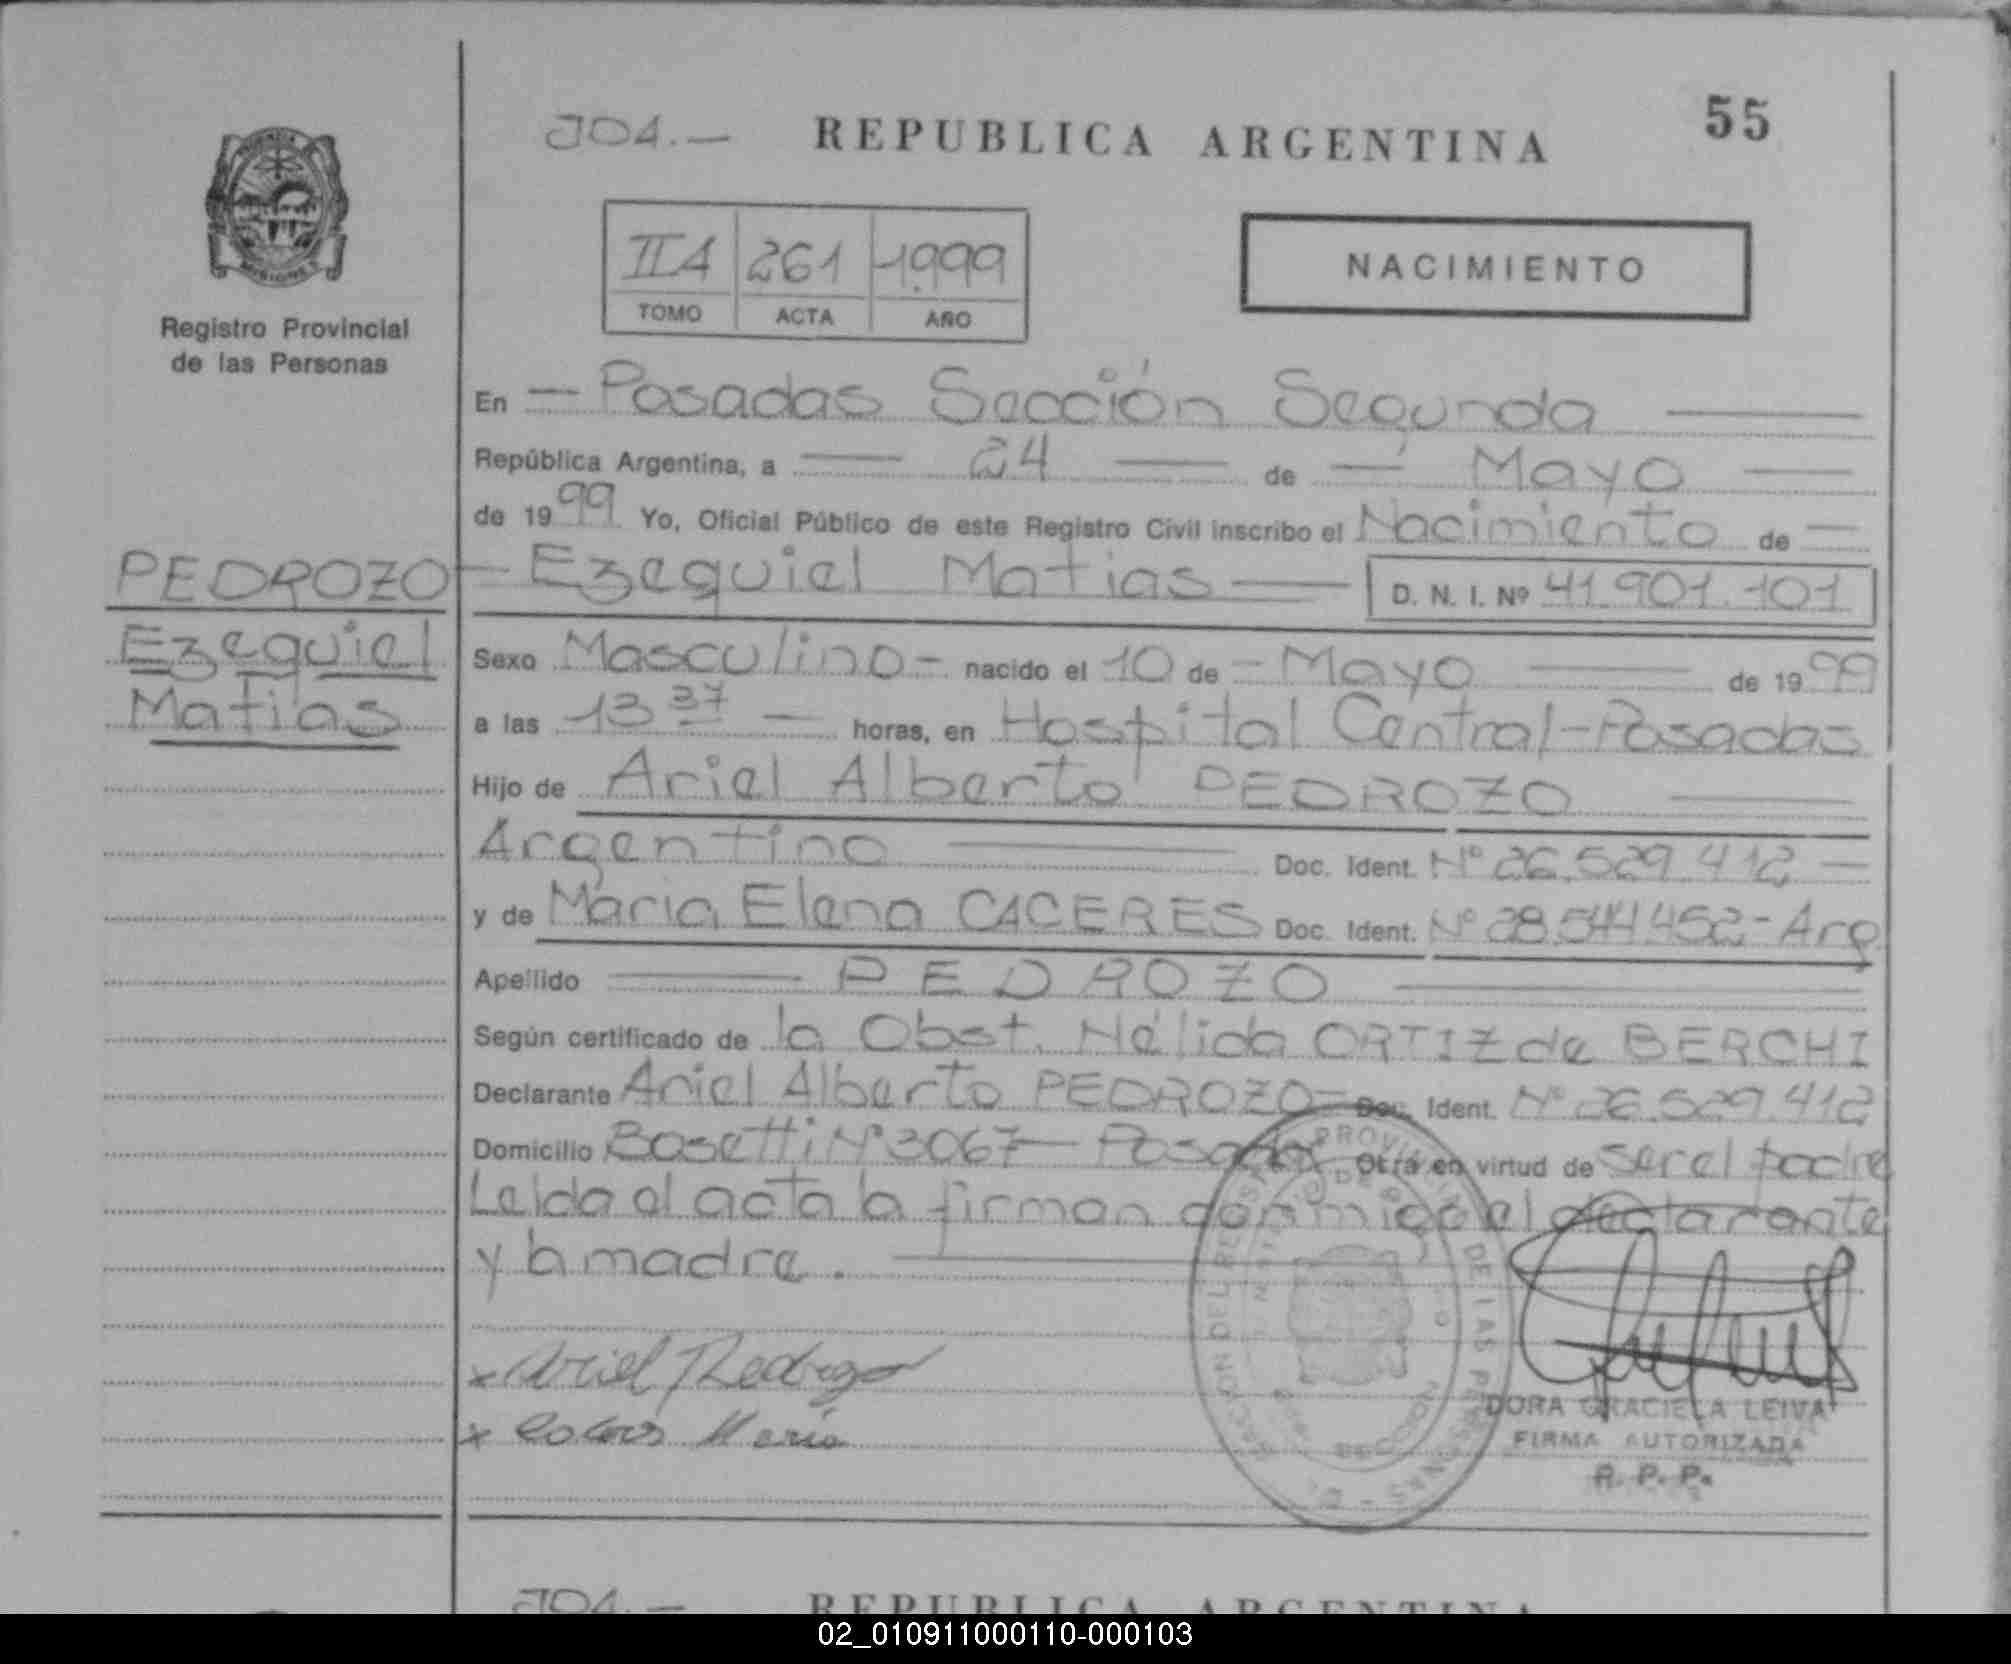 JO4.— REPUBLICA ARGENTINA 55
II4 261 1.999
TOMO ACTA AÑO
NACIMIENTO
MISIONES
Registro Provincial
de las Personas
En — Posadas Sección Segunda —
República Argentina, a — 24 — de — Mayo —
de 1999 Yo, Oficial Público de este Registro Civil inscribo el Nacimiento de —
PEDROZO — Ezequiel Matias — D. N. I. Nº 41.901.101
Ezequiel
Matias
Sexo Masculino — nacido el 10 de — Mayo — de 1999
a las 13 37 — horas, en Hospital Central - Posadas
Hijo de Ariel Alberto PEDROZO —
Argentino — Doc. Ident. Nº 26.529.412 —
y de Maria Elena CACERES Doc. Ident. Nº 28.544.452 - Arg
Apellido — PEDROZO —
Según certificado de la Obst. Nélida ORTIZ de BERCHI
Declarante Ariel Alberto PEDROZO — Doc. Ident. Nº 26.529.412
Domicilio Bosetti Nº 3067 — Posadas Otra en virtud de ser el padre
Leida el acta la firman conmigo el declarante
y la madre. —
x Ariel Pedrozo
x María
DORA GRACIELA LEIVA
FIRMA AUTORIZADA
R. P. P.
JO4.— REPUBLICA ARGENTINA
02_010911000110-000103